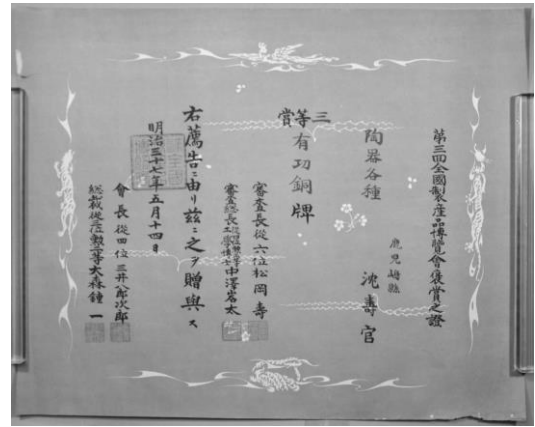 第三回全國製產品博覽會褒賞之證
鹿兒島縣
陶器各種 沈壽官
三等賞有功銅牌
審査長從六位松岡壽
審査總長工學博士中澤岩太
右薦告ニ由リ茲ニ之ヲ贈與ス
明治三十七年五月十四日
會長從四位三井八郎次郎
總裁從三位勳二等大森鍾一